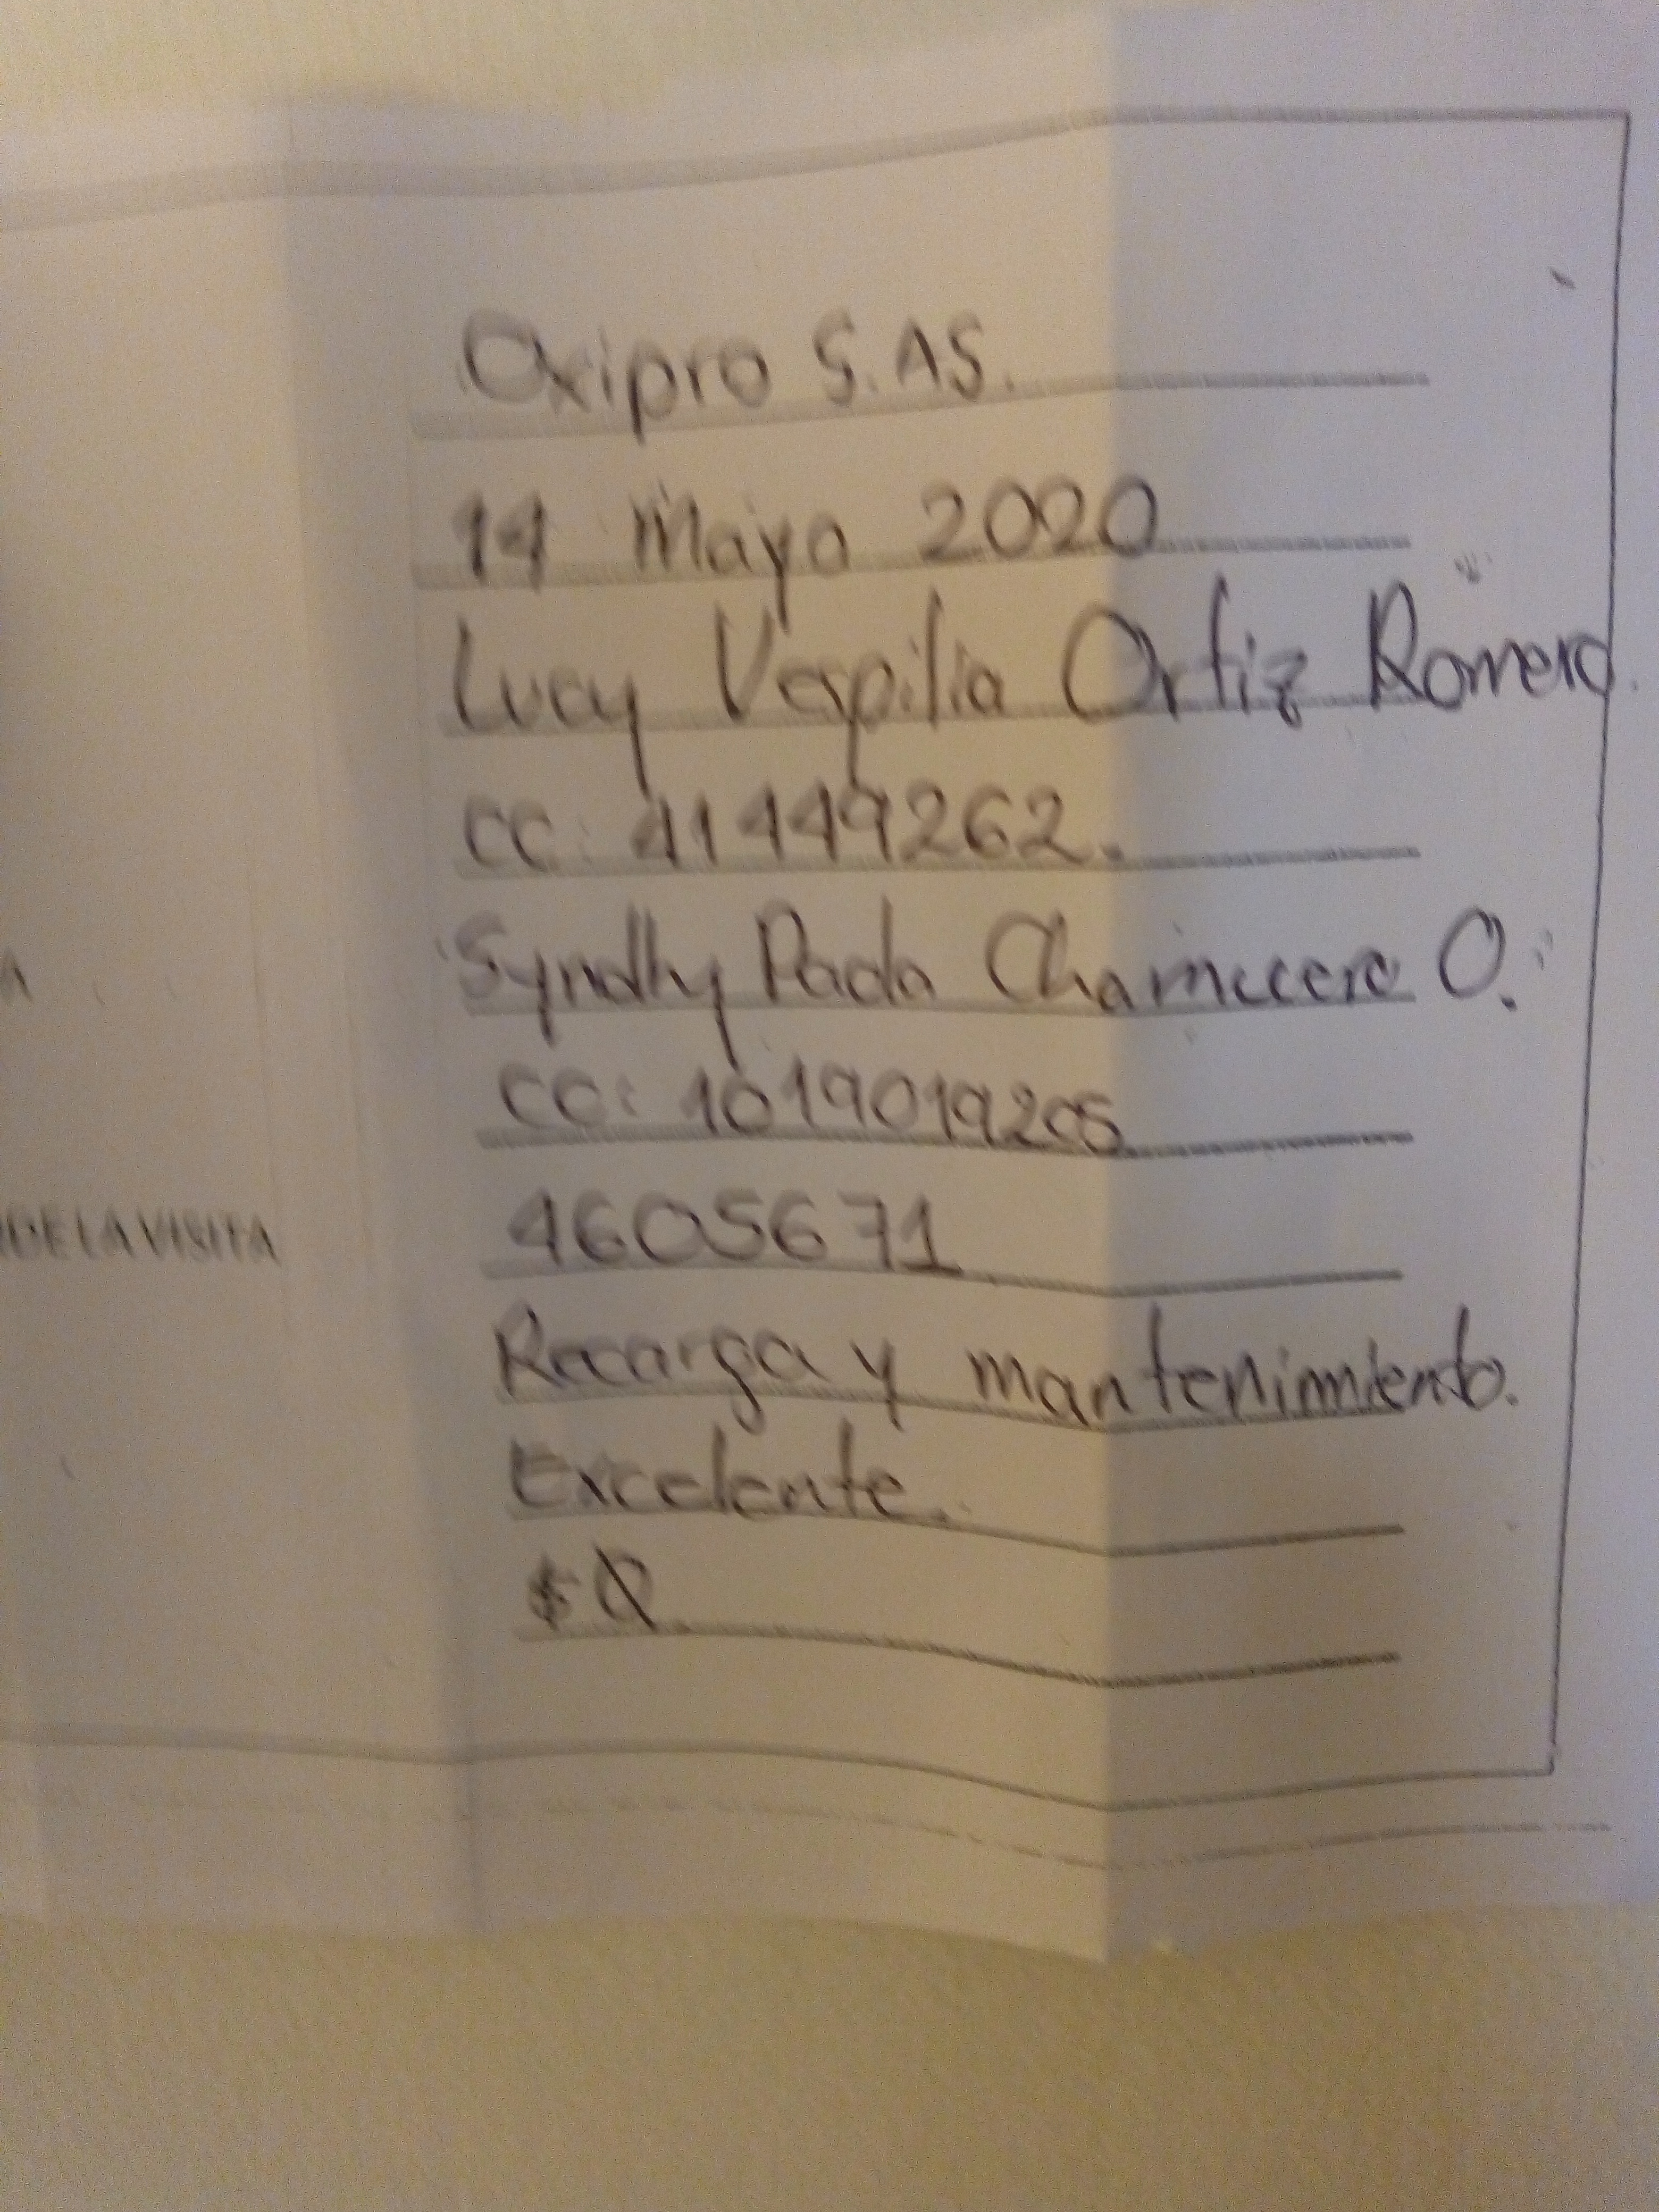 Oxipro S.AS.
14 Mayo 2020
Lucy Vespilia Ortiz Romero.
CC: 41449262.
Syndhy Paola Chamucero O.
A
CC: 1019019205
4605671
DE LA VISITA
Recarga y mantenimiento.
Excelente.
$0